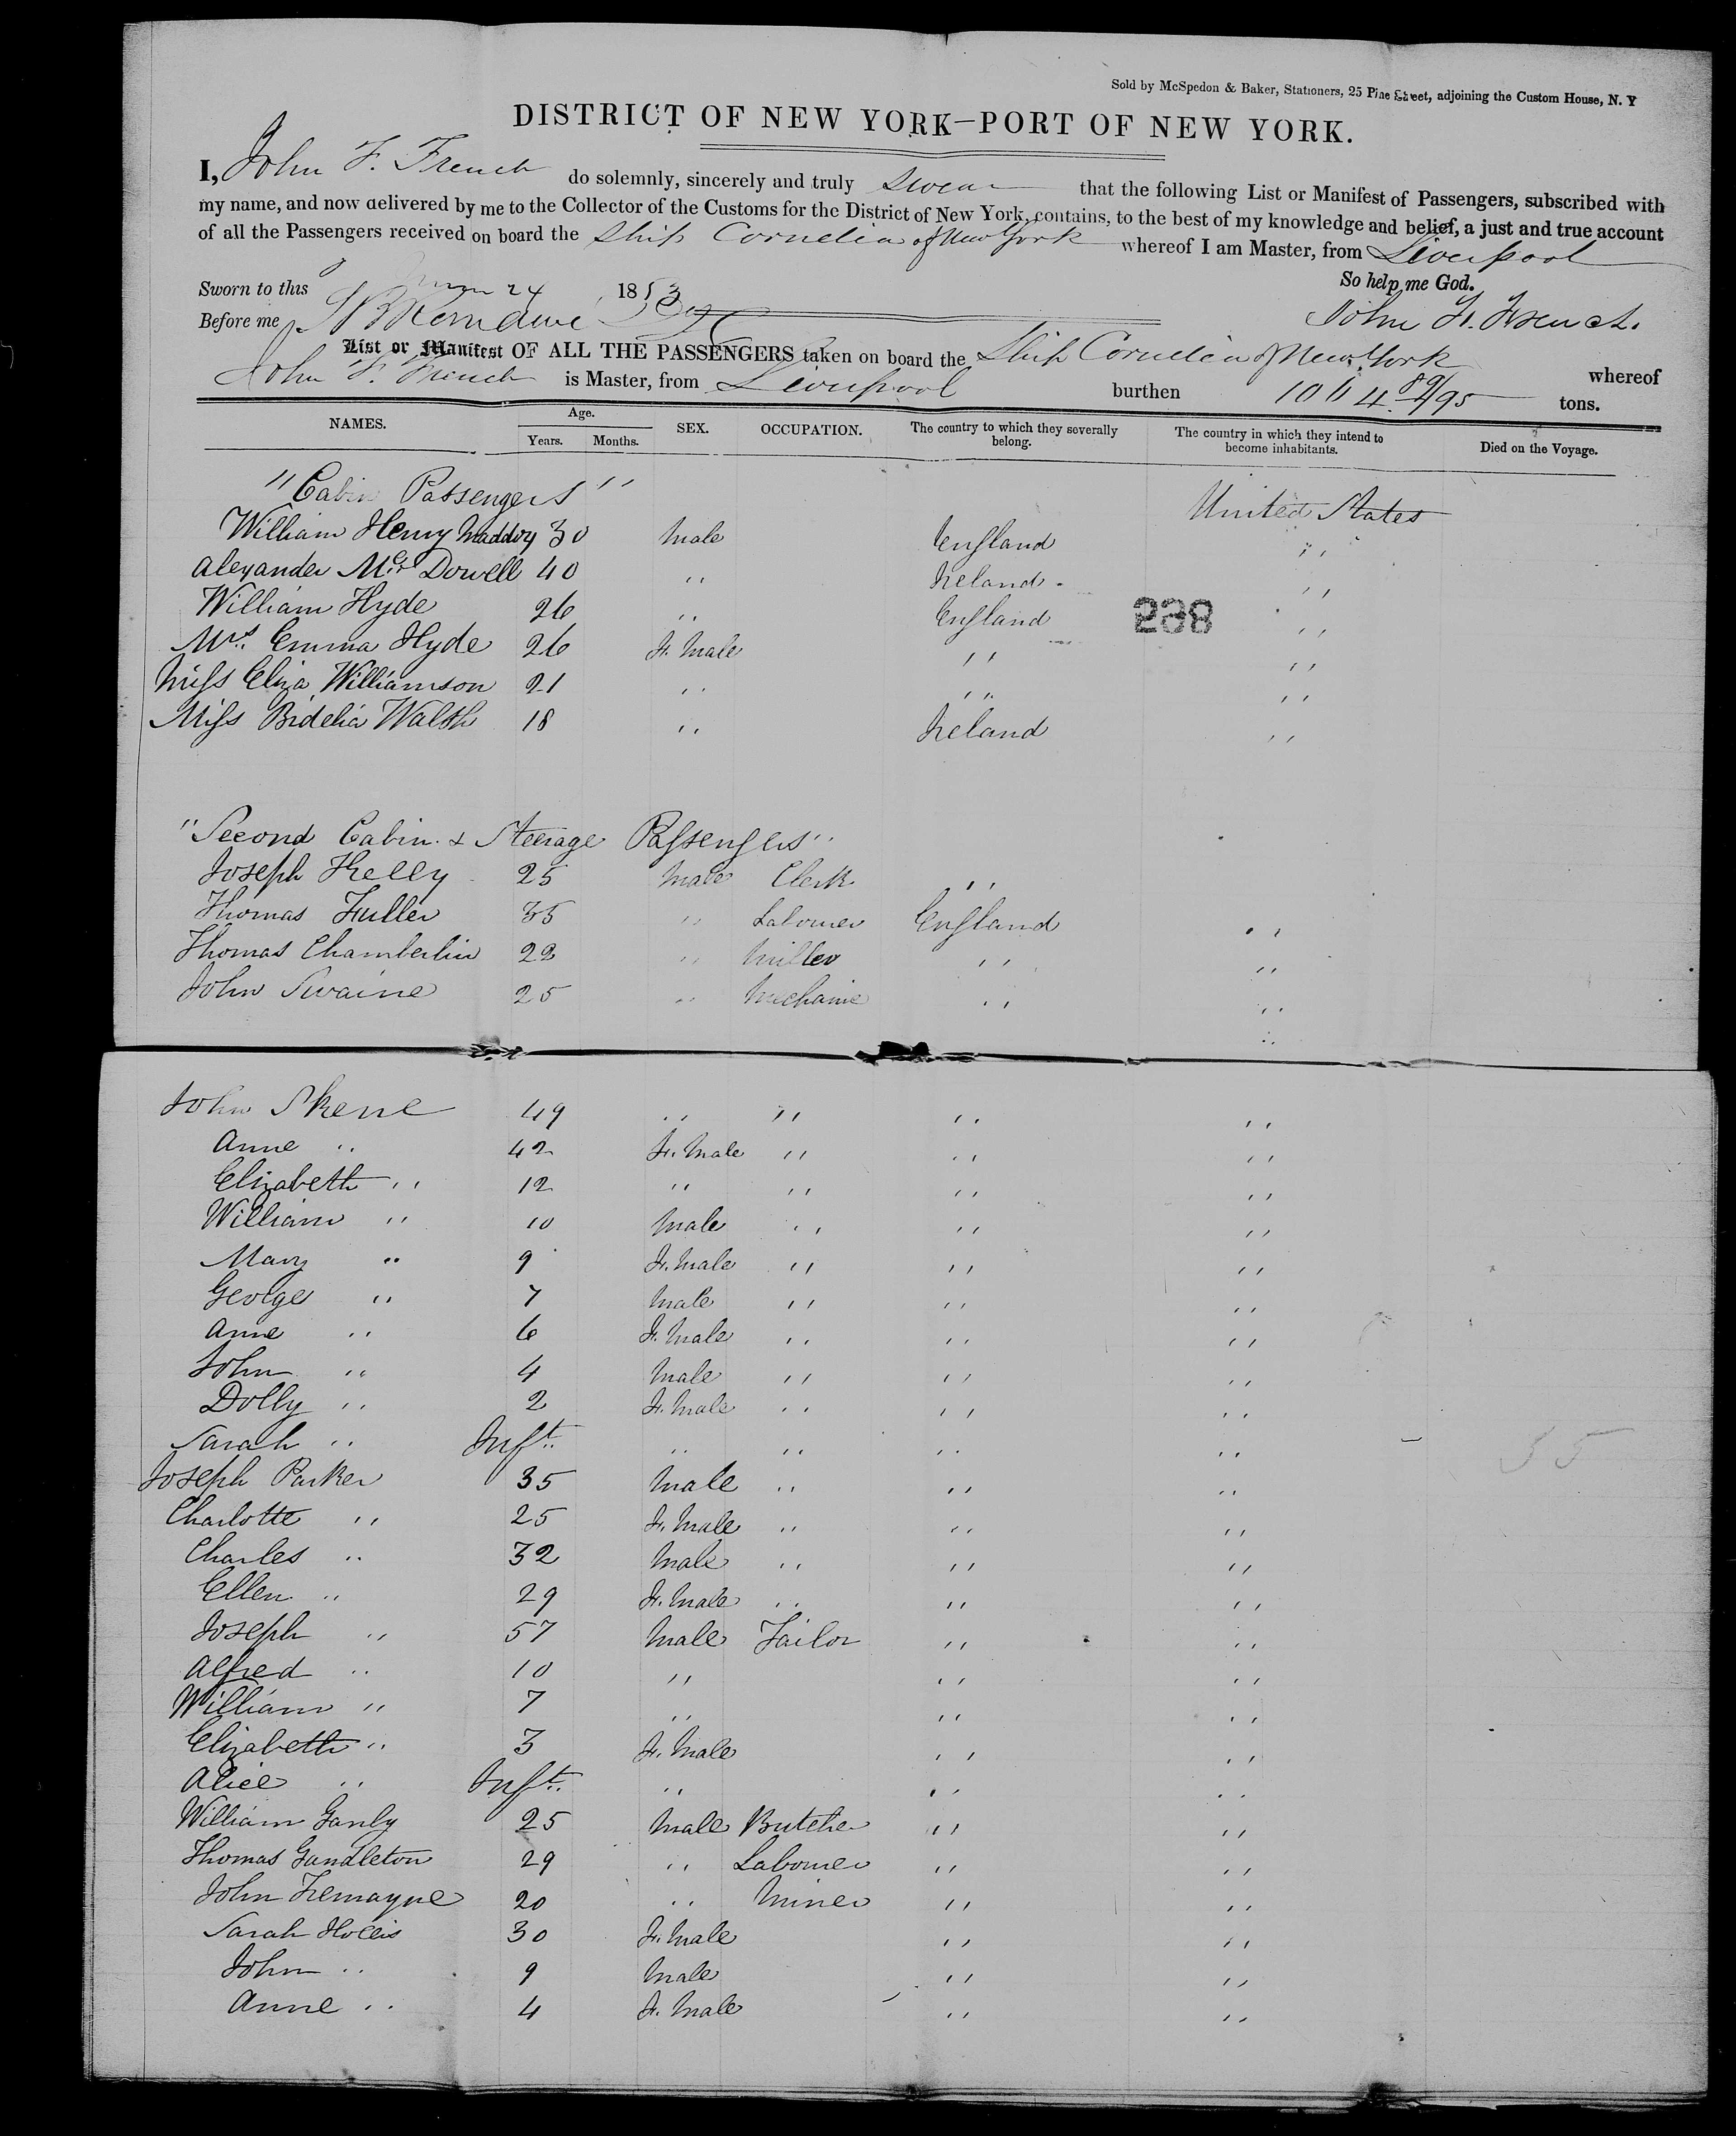 Sold by McSpedon & Baker, Stationers, 25 Pine Street, adjoining the Custom House, N. Y
DISTRICT OF NEW YORK—PORT OF NEW YORK.
I, John F. French do solemnly, sincerely and truly swear that the following List or Manifest of Passengers, subscribed with
my name, and now delivered by me to the Collector of the Customs for the District of New York, contains, to the best of my knowledge and belief, a just and true account
of all the Passengers received on board the Ship Cornelia of New York whereof I am Master, from Liverpool
So help me God.
Sworn to this 24 1853
Before me John F. French.
List or Manifest OF ALL THE PASSENGERS taken on board the Ship Cornelia of New York whereof
John F. French is Master, from Liverpool burthen 1064 89/95 tons.
NAMES. Age. Years. Months. SEX. OCCUPATION. The country to which they severally belong. The country in which they intend to become inhabitants. Died on the Voyage.
"Cabin Passengers" United States
William Henry Maddox 30 Male England ,,
Alexander Mc Dowell 40 ,, Ireland. ,,
William Hyde 26 ,, England 238 ,,
Mrs. Emma Hyde 26 F. Male ,, ,,
Miss Eliza Williamson 21 ,, ,, ,,
Miss Bidelia Walsh 18 ,, Ireland ,,
"Second Cabin & Steerage Passengers"
Joseph Kelly 25 Male Clerk ,,
Thomas Fuller 35 ,, Labourer England ,,
Thomas Chamberlin 22 ,, Miller ,, ,,
John Swaine 25 ,, Mechanic ,, ,,
John Skene 49 ,, ,, ,, ,,
Anne ,, 42 F. Male ,, ,, ,,
Elizabeth ,, 12 ,, ,, ,, ,,
William ,, 10 Male ,, ,, ,,
Mary ,, 9 F. Male ,, ,, ,,
George ,, 7 Male ,, ,, ,,
Anne ,, 6 F. Male ,, ,, ,,
John ,, 4 Male ,, ,, ,,
Dolly ,, 2 F. Male ,, ,, ,,
Sarah ,, Inft. ,, ,, ,, ,, 35
Joseph Parker 35 Male ,, ,, ,,
Charlotte ,, 25 F. Male ,, ,, ,,
Charles ,, 32 Male ,, ,, ,,
Ellen ,, 29 F. Male ,, ,, ,,
Joseph ,, 57 Male Tailor ,, ,,
Alfred ,, 10 ,, ,, ,,
William ,, 7 ,, ,, ,,
Elizabeth ,, 3 F. Male ,, ,,
Alice ,, Inft. ,, ,, ,,
William Ganly 25 Male Butcher ,, ,,
Thomas Gandleton 29 ,, Labourer ,, ,,
John Tremayne 20 ,, Miner ,, ,,
Sarah Hollis 30 F. Male ,, ,,
John ,, 9 Male ,, ,,
Anne ,, 4 F. Male ,, ,,